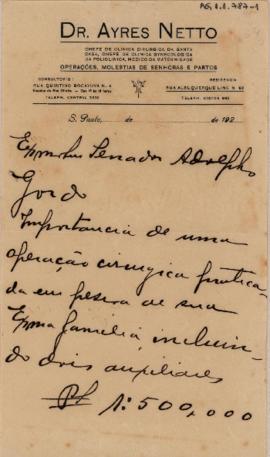 AG.1.1.787-1
DR. AYRES NETTO
CHEFE DE CLINICA CIRURGICA DA SANTA
CASA, CHEFE DE CLINICA GYNECOLOGICA
DA POLICLINICA, MEDICO DA MATERNIDADE
OPERAÇÕES, MOLESTIAS DE SENHORAS E PARTOS
CONSULTORIO:
RUA QUINTINO BOCAYUVA N. 4
RESIDENCIA
RUA ALBUQUERQUE LINS N. 92
TELEPH. CIDADE
S. Paulo, de de 192
Exmo Snr Senador Adolpho
Gordo
Importancia de uma
operação cirurgica pratica-
da em pessoa de sua
Exma familia, incluin-
do dois auxiliares
1:500,000